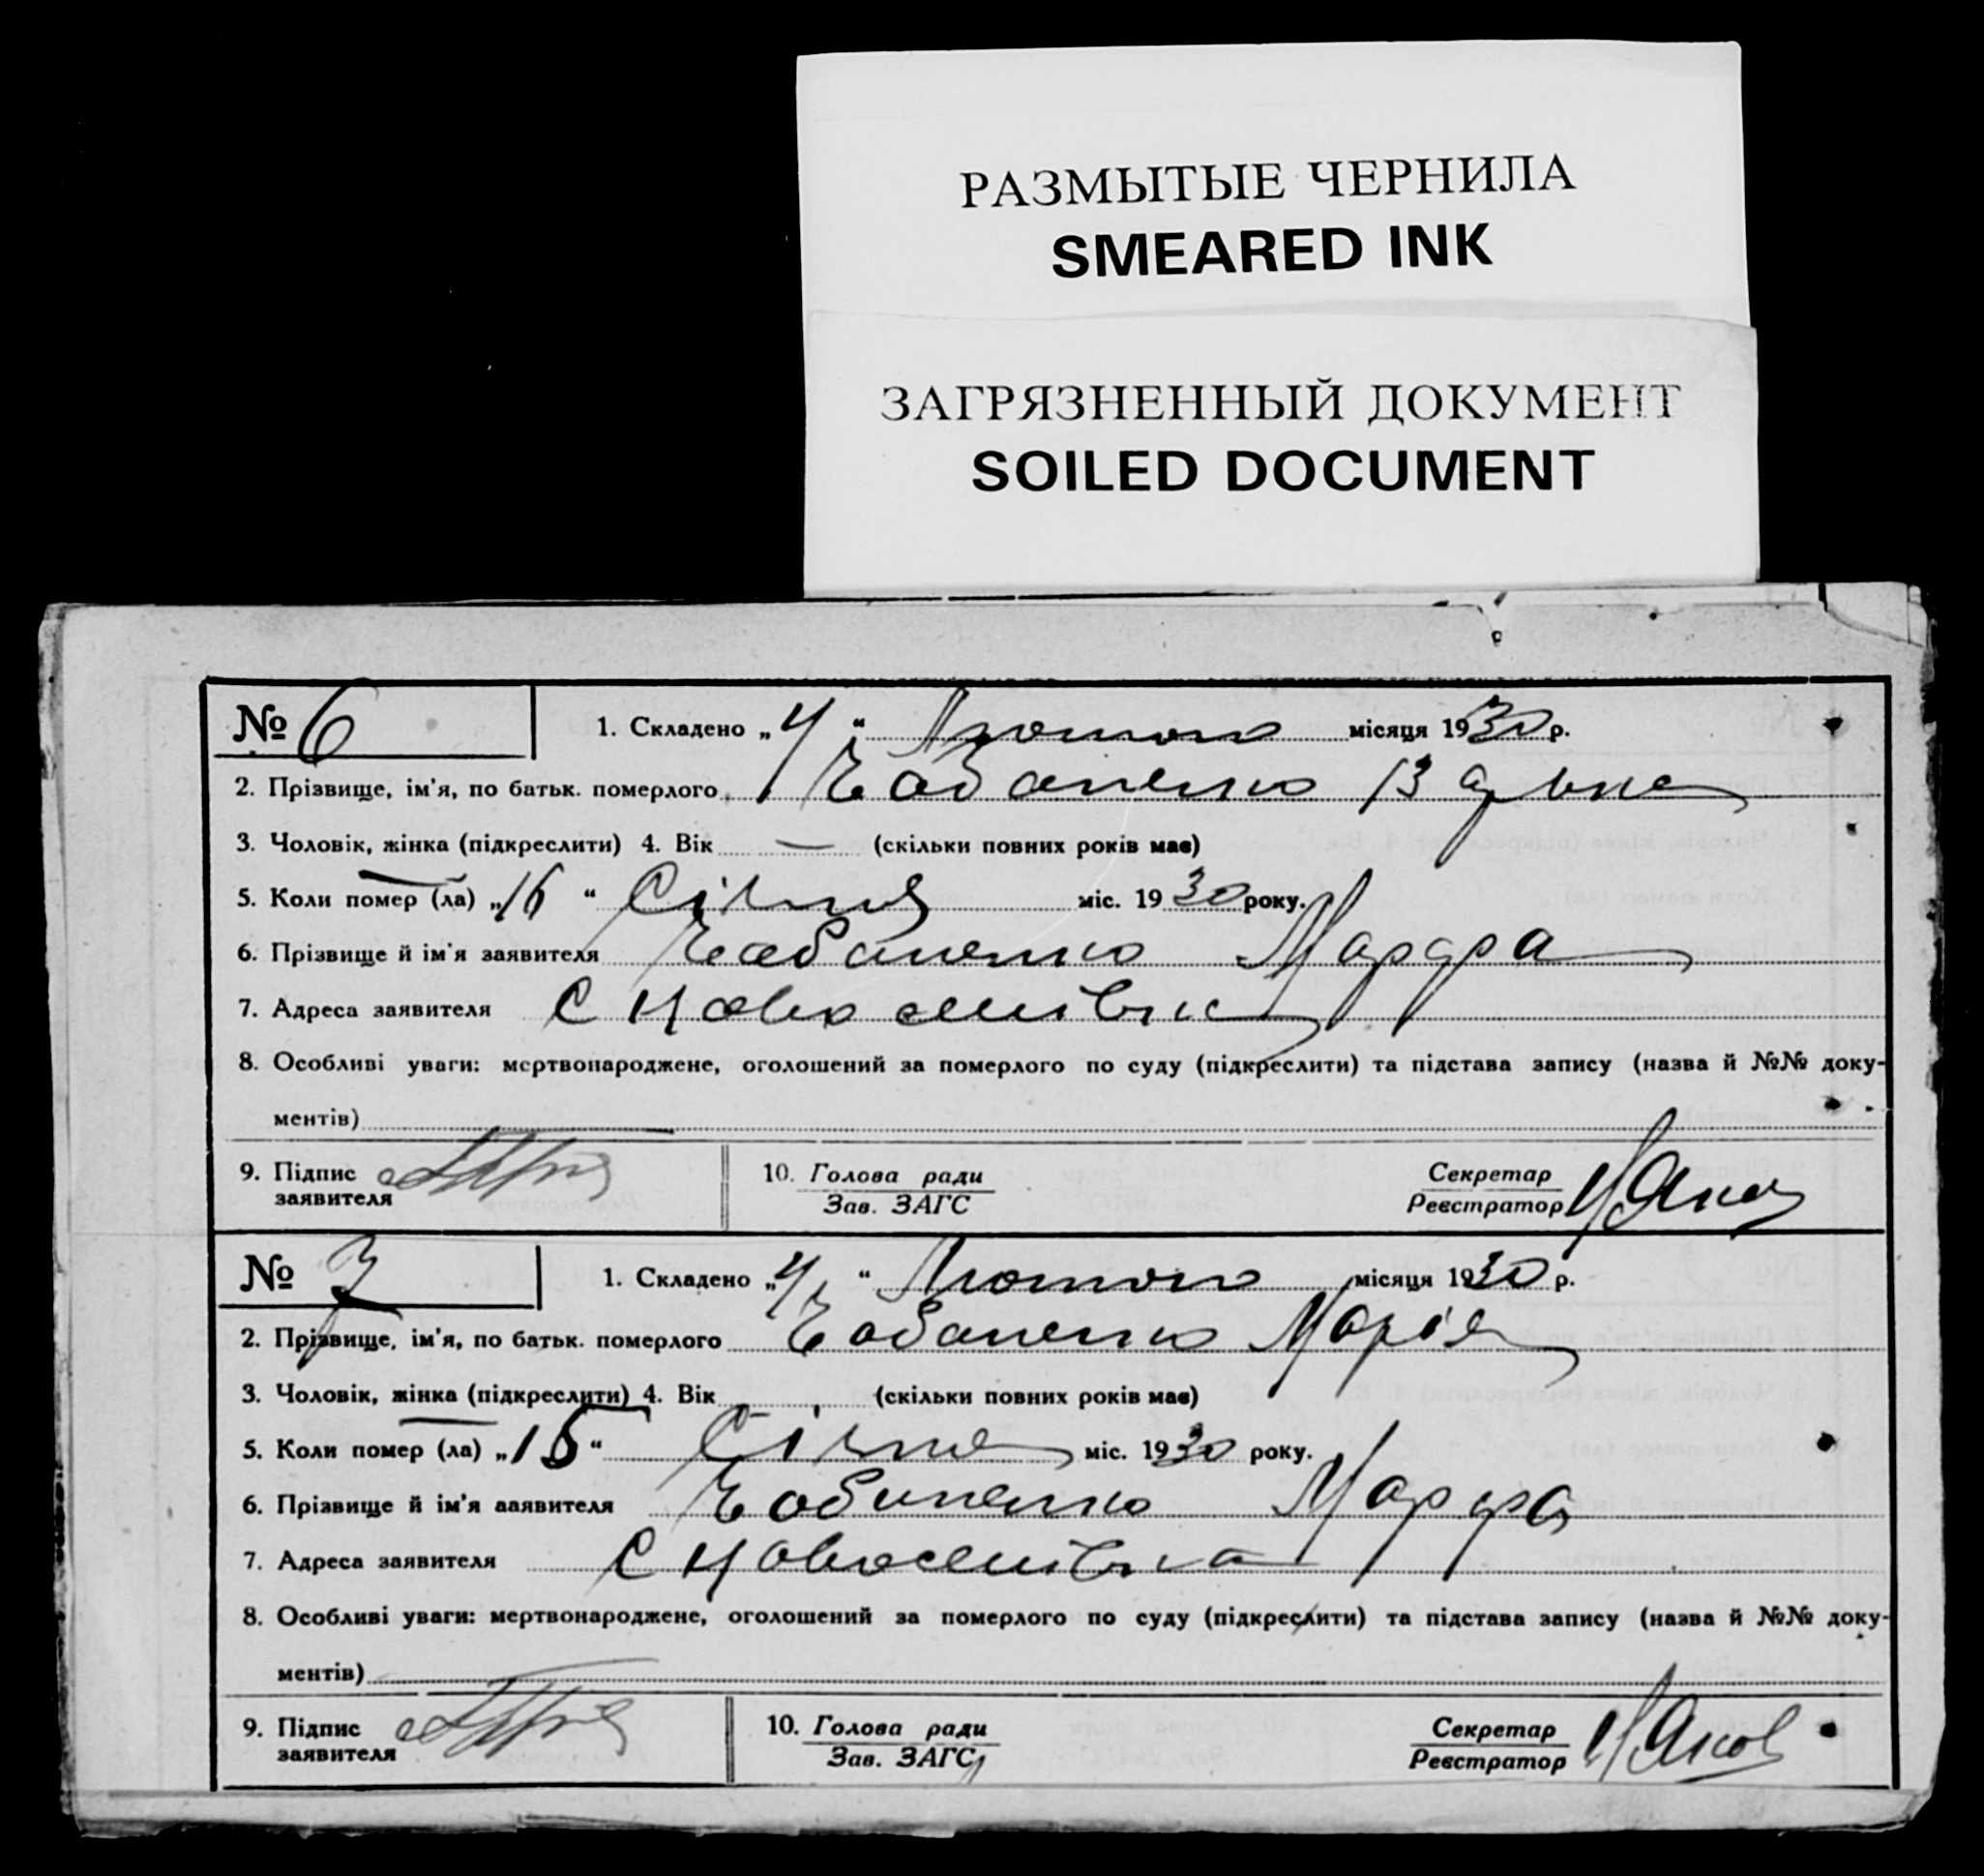 РАЗМЫТЫЕ ЧЕРНИЛА
SMEARED INK
ЗАГРЯЗНЕННЫЙ ДОКУМЕНТ
SOILED DOCUMENT
№ 6 1. Складено „4“ Лютого місяця 1930 р.
2. Прізвище, ім'я, по батьк. померлого Чабаненко
3. Чоловік, жінка (підкреслити) 4. Вік — (скільки повних років має)
5. Коли помер (ла) „16“ Січня міс. 1930 року.
6. Прізвище й ім'я заявителя Чабаненко Марфа
7. Адреса заявителя с Новоселівка
8. Особливі уваги: мертвонароджене, оголошений за померлого по суду (підкреслити) та підстава запису (назва й №№ доку-
ментів)
9. Підпис 10. Голова ради Секретар
заявителя Зав. ЗАГС Реєстратор
№ 7 1. Складено „4“ Лютого місяця 1930 р.
2. Прізвище, ім'я, по батьк. померлого Чабаненко Марія
3. Чоловік, жінка (підкреслити) 4. Вік (скільки повних років має)
5. Коли помер (ла) „15“ Січня міс. 1930 року.
6. Прізвище й ім'я заявителя Чабаненко Марфа
7. Адреса заявителя с Новоселівка
8. Особливі уваги: мертвонароджене, оголошений за померлого по суду (підкреслити) та підстава запису (назва й №№ доку-
ментів)
9. Підпис 10. Голова ради Секретар
заявителя Зав. ЗАГС Реєстратор